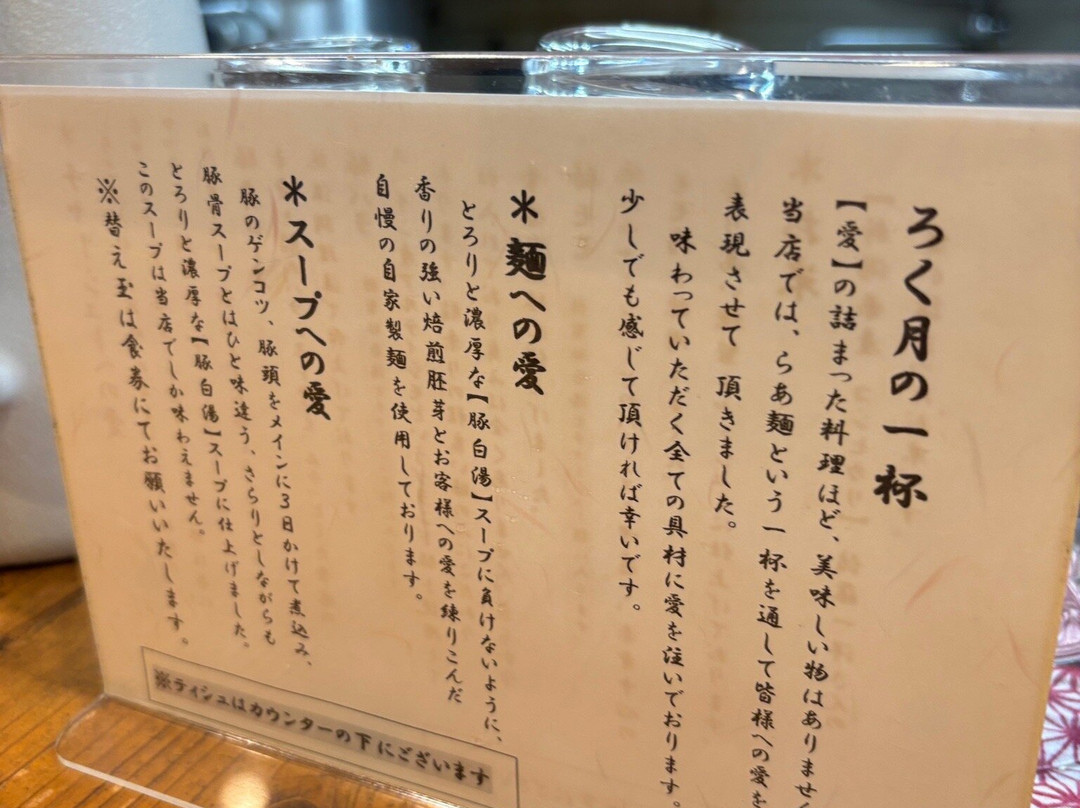 ろく月の一杯
【愛】の詰まった料理ほど、美味しい物はありません
当店では、らあ麺という一杯を通して皆様への愛を
表現させて頂きました。
味わっていただく全ての具材に愛を注いでおります。
少しでも感じて頂ければ幸いです。
＊麺への愛
とろりと濃厚な【豚白湯】スープに負けないように、
香りの強い焙煎胚芽とお客様への愛を練りこんだ
自慢の自家製麺を使用しております。
＊スープへの愛
豚のゲンコツ、豚頭をメインに3日かけて煮込み、
豚骨スープとはひと味違う、さらりとしながらも
とろりと濃厚な【豚白湯】スープに仕上げました。
このスープは当店でしか味わえません。
※替え玉は食券にてお願いいたします。
※ティシュはカウンターの下にございます